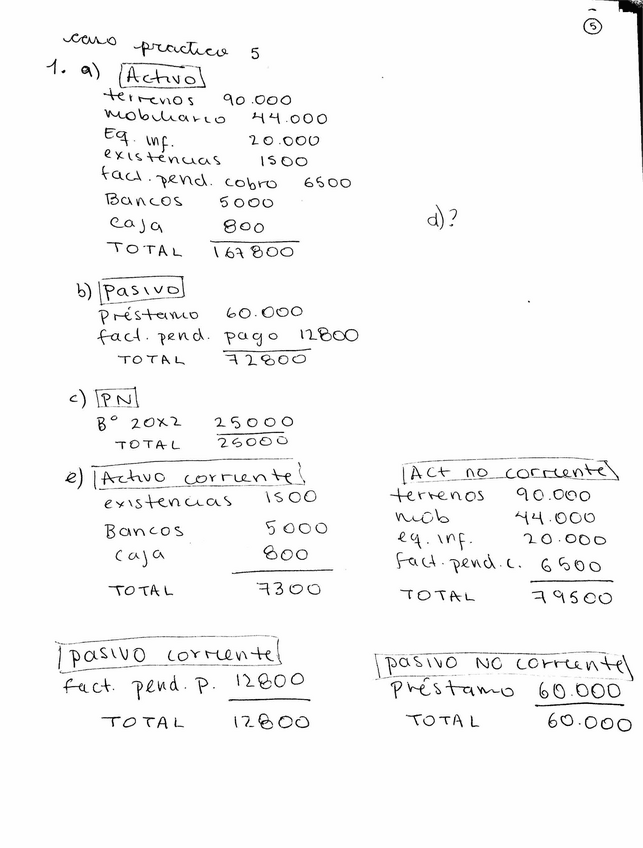 5
caso practico 5
1. a) Activo
terrenos 90.000
mobiliario 44.000
Eq. inf. 20.000
existencias 1500
fact. pend. cobro 6500
Bancos 5000
caja 800
d)?
TOTAL 167800
b) Pasivo
Préstamo 60.000
fact. pend. pago 12800
TOTAL 72800
c) PN
Bº 20x2 25000
TOTAL 25000
e) Activo corriente
existencias 1500
Bancos 5000
caja 800
TOTAL 7300
Act no corriente
terrenos 90.000
mob 44.000
eq. inf. 20.000
fact. pend. c. 6500
TOTAL 79500
pasivo corriente
fact. pend. p. 12800
TOTAL 12800
pasivo no corriente
Préstamo 60.000
TOTAL 60.000